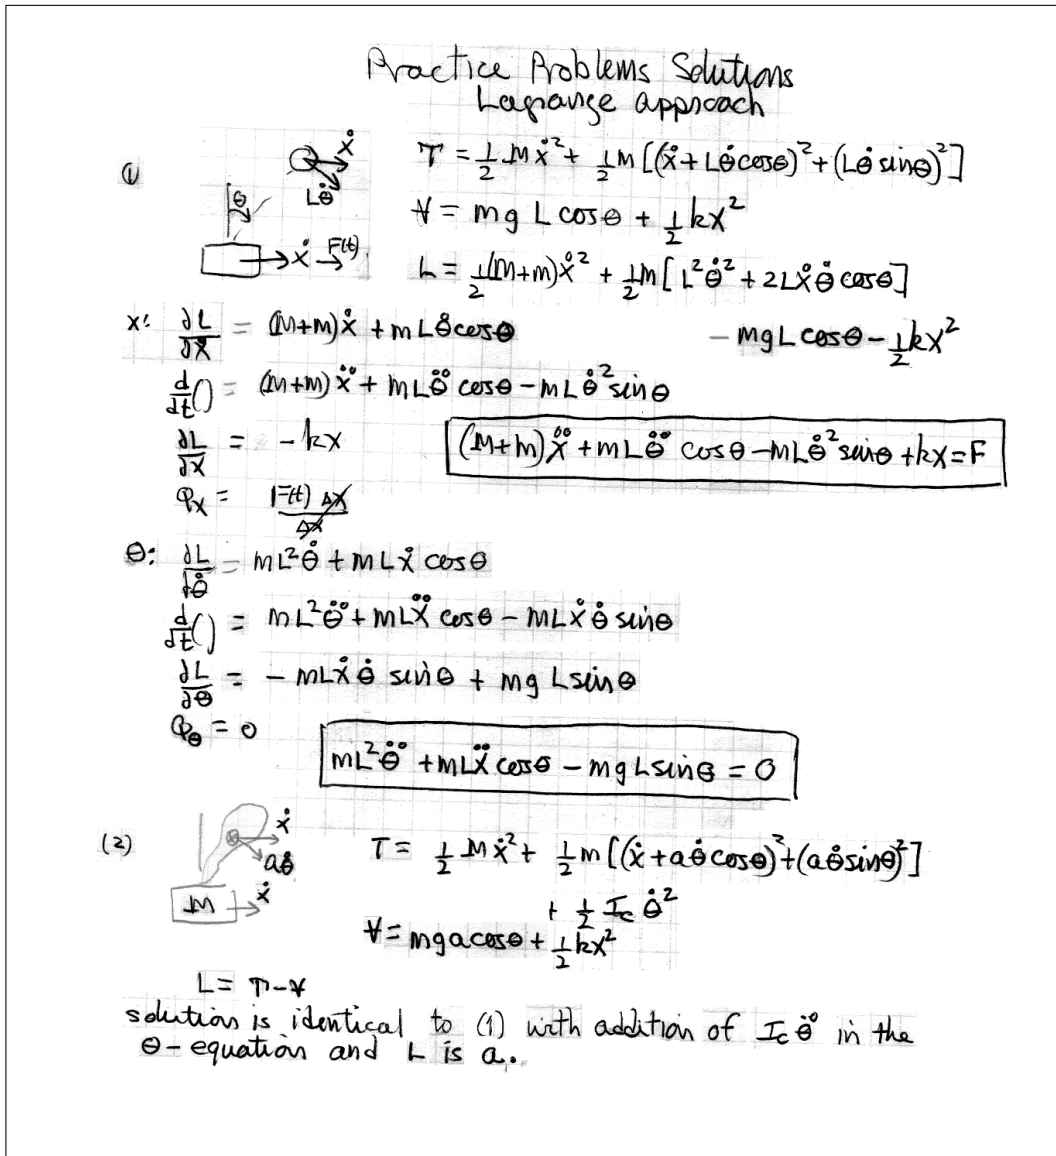 Practice Problems Solutions
Lagrange approach
(1)
ẋ
Lθ̇
θ
ẋ F(t)
T = 1/2 Mẋ² + 1/2 m[(ẋ+Lθ̇cosθ)² + (Lθ̇ sinθ)²]
V = mg L cosθ + 1/2 kx²
L = 1/2 (M+m)ẋ² + 1/2 m[L²θ̇² + 2Lẋθ̇ cosθ]
- mgL cosθ - 1/2 kx²
x: ∂L/∂ẋ = (M+m)ẋ + mLθ̇cosθ
d/dt() = (M+m)ẍ + mLθ̈ cosθ - mLθ̇² sinθ
∂L/∂x = - kx
(M+m)ẍ + mLθ̈ cosθ - mLθ̇² sinθ + kx = F
Qx = F(t) Δx/Δx
θ: ∂L/∂θ̇ = mL²θ̇ + mLẋ cosθ
d/dt() = mL²θ̈ + mLẍ cosθ - mLẋθ̇ sinθ
∂L/∂θ = - mLẋθ̇ sinθ + mg L sinθ
Qθ = 0
mL²θ̈ + mLẍ cosθ - mgL sinθ = 0
(2)
ẋ
aθ̇
M ẋ
T = 1/2 Mẋ² + 1/2 m[(ẋ+aθ̇cosθ)² + (aθ̇sinθ)²]
+ 1/2 Ic θ̇²
V = mgacosθ + 1/2 kx²
L = T-V
solution is identical to (1) with addition of Ic θ̈ in the
θ-equation and L is a.